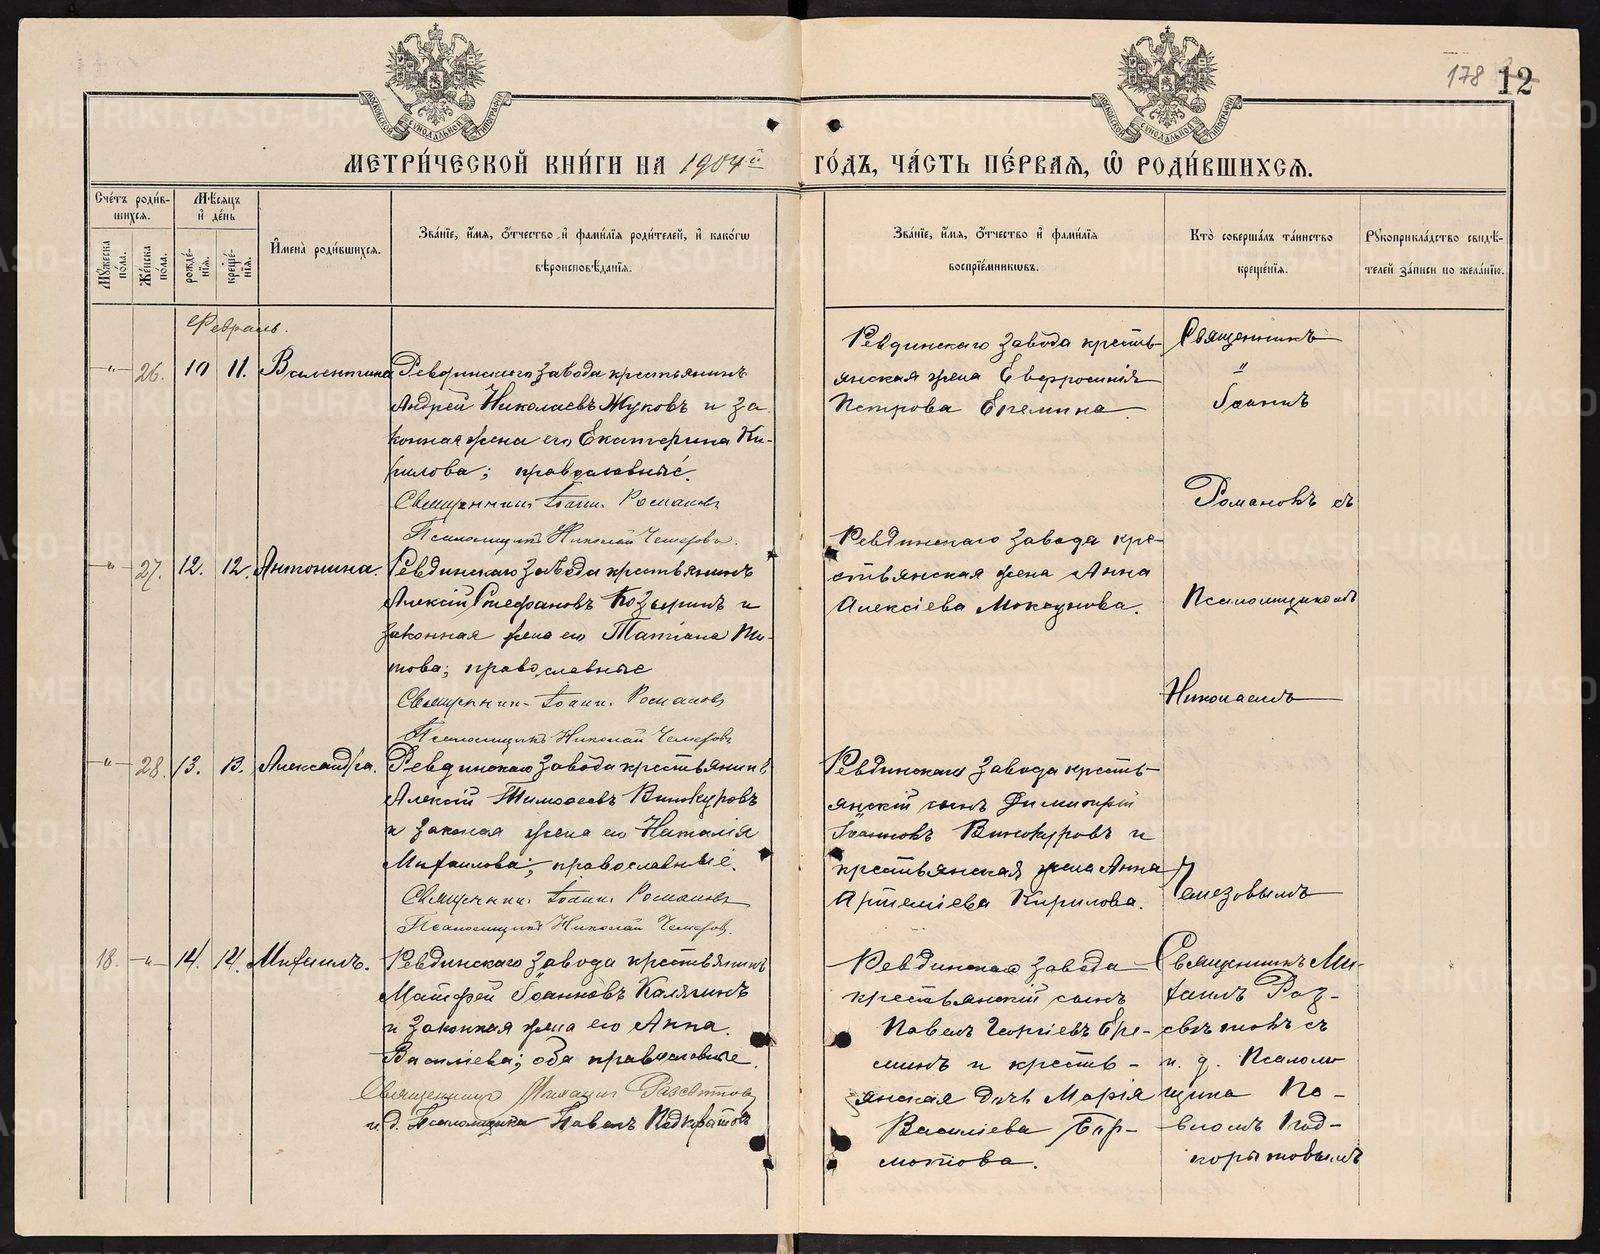 178 12
МЕТРИ́ЧЕСКОЙ КНИ́ГИ НА 1904й ГО́ДЪ, ЧА́СТЬ ПЕ́РВАЯ, Ѡ҆ РОДИ́ВШИХСѦ.
Сче́тъ роди́в-
шихсѧ.
Мꙋ́жеска по́ла.
Же́нска по́ла.
Мѣ́сѧцъ
и҆ де́нь
рожде́-
нїѧ.
креще́-
нїѧ.
И҆мена̀ роди́вшихсѧ.
Зва́нїе, и҆́мѧ, ѻ҆́тчество и҆ фами́лїѧ роди́телей, и҆ како́гѡ
вѣроисповѣ́данїѧ.
Зва́нїе, и҆́мѧ, ѻ҆́тчество и҆ фами́лїѧ
воспрїе́мникѡвъ.
Кто̀ соверша́лъ та́инство
креще́нїѧ.
Рꙋкоприкла́дство свидѣ́-
телей за́писи по жела́нїю.
Февраль.
-"- 26. 10 11. Валентина
Ревдинскаго завода крестьянинъ
Андрей Николаевъ Жуковъ и за
конная жена его Екатерина Ки-
рилова; православные.
Священникъ Іоаннъ Романовъ
Псаломщикъ Николай Чемезовъ.
Ревдинскаго завода кресть-
янская жена Евфросинія
Петрова Еремина
Священникъ
Іоаннъ
Романовъ съ
-"- 27. 12. 12. Антонина.
Ревдинскаго завода крестьянинъ
Алексій Стефановъ Козыринъ и
законная жена его Татіана Ти-
това; православные
Священник Іоанн Романовъ
Псаломщикъ Николай Чемезовъ
Ревдинскаго завода кре-
стьянская жена Анна
Алексіева Мокаунова.
Псаломщикомъ
Николаемъ
-"- 28. 13. 13. Александра.
Ревдинскаго завода крестьянинъ
Алексій Тимоѳеевъ Винокуровъ
и законая жена его Наталія
Михаилова; православные.
Священник Іоанн Романовъ
Псаломщикъ Николай Чемезовъ.
Ревдинскаго завода кресть-
янскій сынъ Димитрій
Іоанновъ Винокуровъ и
крестьянская жена Анна
Артеміева Кирилова.
Чемезовымъ
18. -"- 14. 14. Михаилъ.
Ревдинскаго завода крестьянинъ
Матфей Іоанновъ Калягинъ
и законная жена его Анна
Василіева; оба православные.
Священникъ Михаилъ Разсветовъ
и.д. Псаломщика Павелъ Подкорытовъ
Ревдинскаго завода
крестьянскій сынъ
Павелъ Георгіевъ Ере-
минъ и кресть-
янская дочь Марія
Василіева Бар-
мотова.
Священникъ Ми-
хаилъ Раз-
свѣтовъ съ
и. д. Псалом-
щика Па-
вломъ Под-
корытовымъ